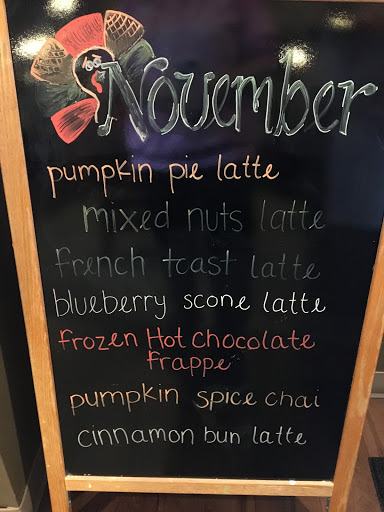 November
pumpkin pie latte
mixed nuts latte
french toast latte
blueberry scone latte
frozen Hot chocolate
frappé
pumpkin spice chai
cinnamon bun latte